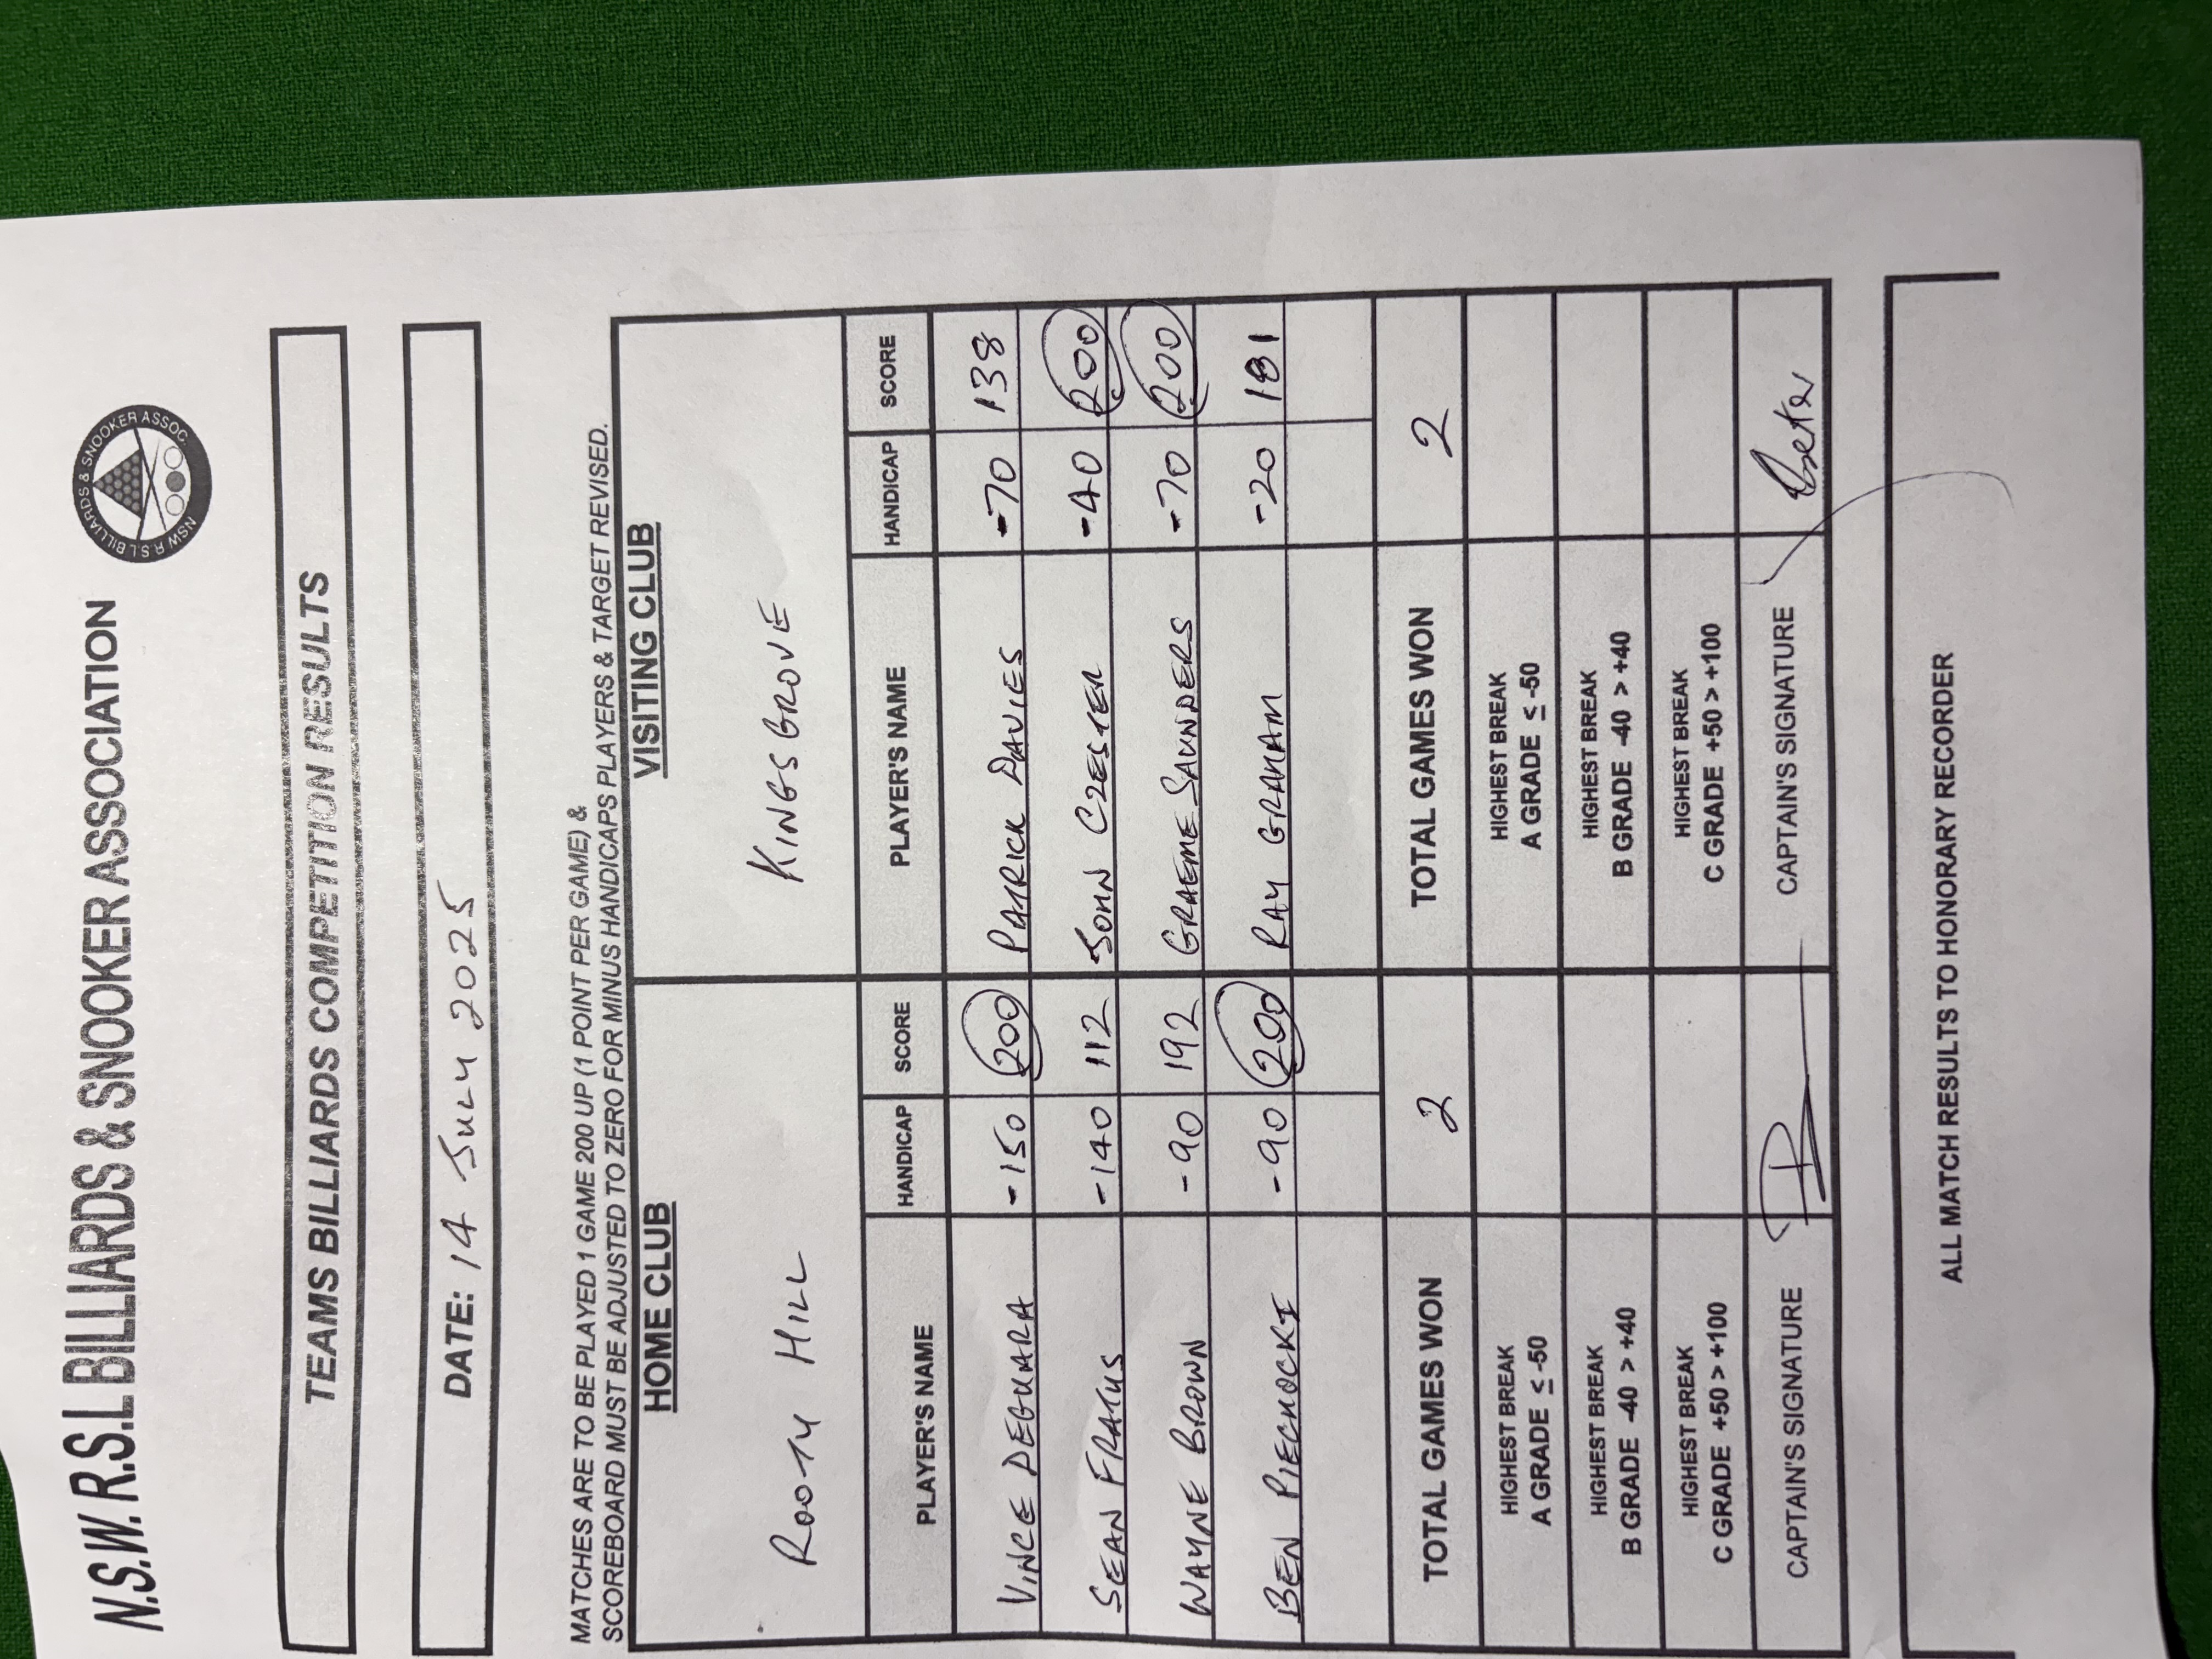 N.S.W. R.S.L BILLIARDS & SNOOKER ASSOCIATION
NSW R.S.L BILLIARDS & SNOOKER ASSOC.
TEAMS BILLIARDS COMPETITION RESULTS
DATE: 14 JULY 2025
MATCHES ARE TO BE PLAYED 1 GAME 200 UP (1 POINT PER GAME) &
SCOREBOARD MUST BE ADJUSTED TO ZERO FOR MINUS HANDICAPS PLAYERS & TARGET REVISED.
HOME CLUB VISITING CLUB
ROOTY HILL KINGSGROVE
PLAYER'S NAME HANDICAP SCORE PLAYER'S NAME HANDICAP SCORE
VINCE DEGUARA -150 200 PATRICK DAVIES -70 138
SEAN FRATUS -140 112 JOHN CZESTER -40 200
WAYNE BROWN -90 192 GRAEME SAUNDERS -70 200
BEN PIECHOCKI -90 200 RAY GRAHAM -20 181
TOTAL GAMES WON 2 TOTAL GAMES WON 2
HIGHEST BREAK HIGHEST BREAK
A GRADE ≤ -50 A GRADE ≤ -50
HIGHEST BREAK HIGHEST BREAK
B GRADE -40 > +40 B GRADE -40 > +40
HIGHEST BREAK HIGHEST BREAK
C GRADE +50 > +100 C GRADE +50 > +100
CAPTAIN'S SIGNATURE CAPTAIN'S SIGNATURE
ALL MATCH RESULTS TO HONORARY RECORDER